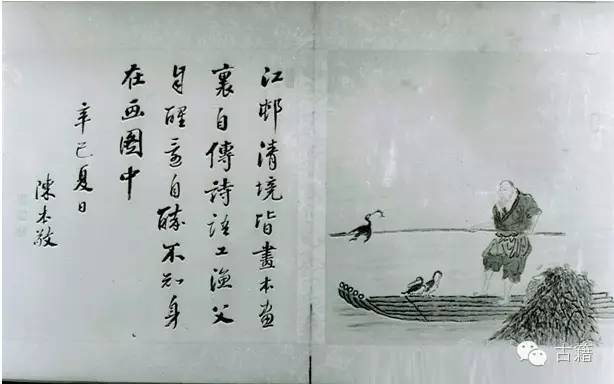 江邨清境皆畫本畫
裏自傳詩語工漁父
自醒還自醉不知身
在画圖中
辛巳夏日
陳本敬
古籍